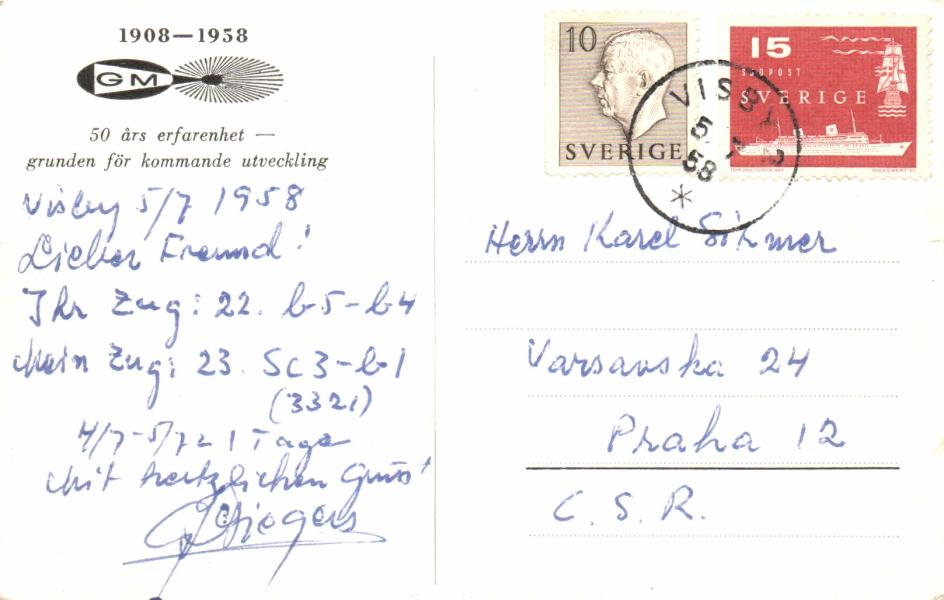 1908—1958
GM
50 års erfarenhet —
grunden för kommande utveckling
Visby 5/7 1958
Lieber Freund!
Ihr Zug: 22. b5-b4
Mein Zug: 23. Sc3-b1
(3321)
4/7-5/7 = 1 Tage
Mit hertzlichen Gruss!
10
SVERIGE
15
SJÖPOST
SVERIGE
VISBY
5
7
58
Herrn Karel
Varsavska 24
Praha 12
C. S. R.